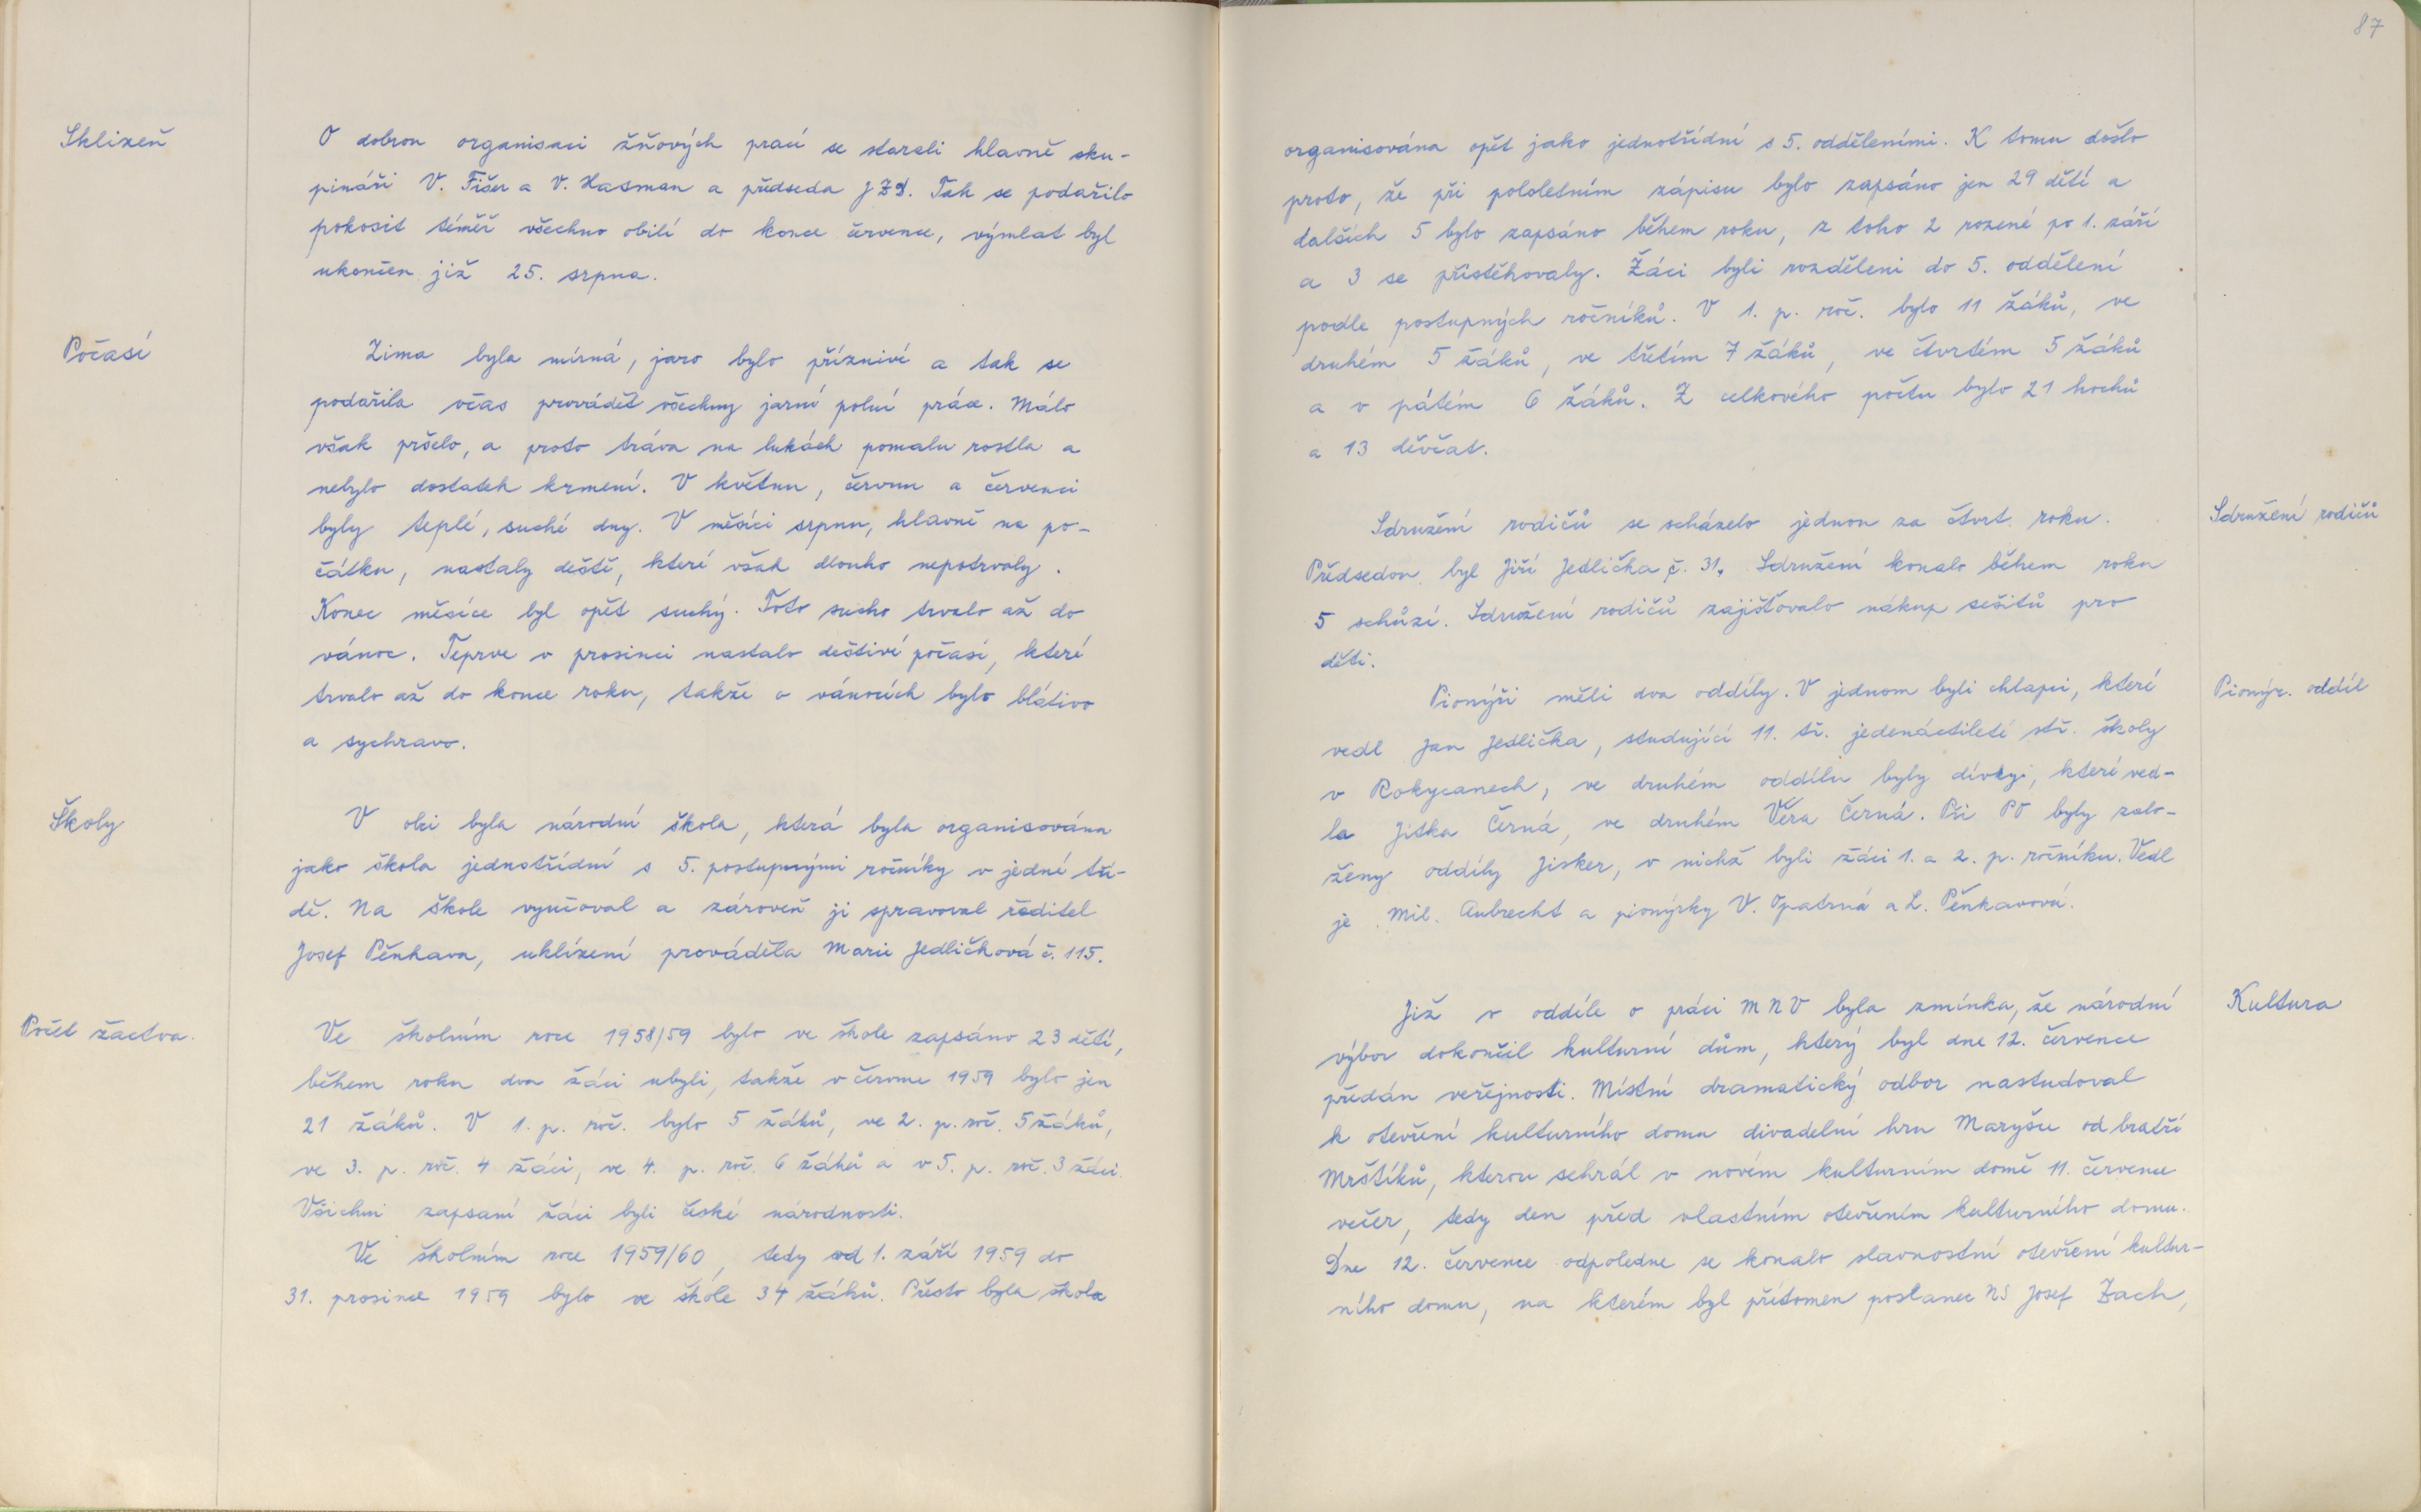 Sklizeň
O dobrou organisaci žňových prací se starali hlavně sku-
pináři V. Fišer a V. Hasman a předseda JZD. Tak se podařilo
pokosit téměř všechno obilí do konce července, výmlat byl
ukončen již 25. srpna.
Počasí
Zima byla mírná, jaro bylo příznivé a tak se
podařila včas provádět všechny jarní polní práce. Málo
však pršelo, a proto tráva na lukách pomalu rostla a
nebylo dostatek krmení. V květnu, červnu a červenci
byly teplé, suché dny. V měsíci srpnu, hlavně na po-
čátku, nastaly deště, které však dlouho nepotrvaly.
Konec měsíce byl opět suchý. Toto sucho trvalo až do
vánoc. Teprve v prosinci nastalo deštivé počasí, které
trvalo až do konce roku, takže o vánocích bylo blátivo
a sychravo.
Školy
V obci byla národní škola, která byla organisována
jako škola jednotřídní s 5. postupnými ročníky v jedné tří-
dě. Na škole vyučoval a zároveň ji spravoval ředitel
Josef Pěnkava, uklízení prováděla Marie Jedličková č. 115.
Počet žactva.
Ve školním roce 1958/59 bylo ve škole zapsáno 23 dětí,
během roku dva žáci ubyli, takže v červnu 1959 bylo jen
21 žáků. V 1. p. roč. bylo 5 žáků, ve 2. p. roč. 5 žáků,
ve 3. p. roč. 4 žáci, ve 4. p. roč. 6 žáků a v 5. p. roč. 3 žáci.
Všichni zapsaní žáci byli české národnosti.
Ve školním roce 1959/60, tedy od 1. září 1959 do
31. prosince 1959 bylo ve škole 34 žáků. Přesto byla škola
87
organisována opět jako jednotřídní s 5. odděleními. K tomu došlo
proto, že při pololetním zápisu bylo zapsáno jen 29 dětí a
dalších 5 bylo zapsáno během roku, z toho 2 rozené po 1. září
a 3 se přistěhovaly. Žáci byli rozděleni do 5. oddělení
podle postupných ročníků. V 1. p. roč. bylo 11 žáků, ve
druhém 5 žáků, ve třetím 7 žáků, ve čtvrtém 5 žáků
a v pátém 6 žáků. Z celkového počtu bylo 21 hochů
a 13 děvčat.
Sdružení rodičů
Sdružení rodičů se scházelo jednou za čtvrt roku.
Předsedou byl Jiří Jedlička č. 31. Sdružení konalo během roku
5 schůzí. Sdružení rodičů zajišťovalo nákup sešitů pro
děti.
Pionýr. oddíl
Pionýři měli dva oddíly. V jednom byli chlapci, které
vedl Jan Jedlička, studující 11. tř. jedenáctileté stř. školy
v Rokycanech, ve druhém oddílu byly dívky, které ved-
la Jitka Černá, ve druhém Věra Černá. Při PO byly zalo-
ženy oddíly Jisker, v nichž byli žáci 1. a 2. p. ročníku. Vedl
je Mil. Aubrecht a pionýrky V. Opatrná a L. Pěnkavová.
Kultura
Již v oddíle o práci MNV byla zmínka, že národní
výbor dokončil kulturní dům, který byl dne 12. července
předán veřejnosti. Místní dramatický odbor nastudoval
k otevření kulturního domu divadelní hru Maryšu od bratří
Mrštíků, kterou sehrál v novém kulturním domě 11. července
večer, tedy den před vlastním otevřením kulturního domu.
Dne 12. července odpoledne se konalo slavnostní otevření kultur-
ního domu, na kterém byl přítomen poslanec NS Josef Zach,